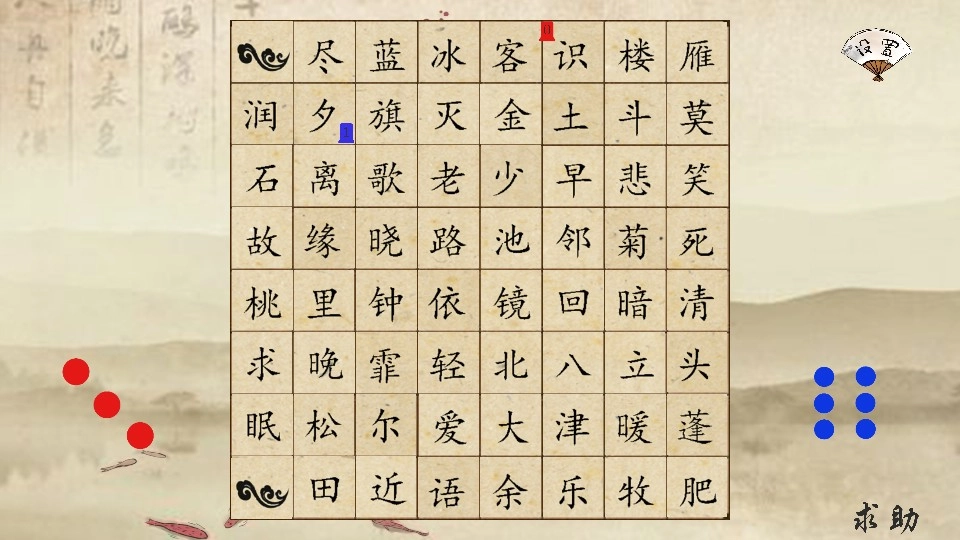 尽蓝冰客识楼雁
润夕旗灭金土斗莫
石离歌老少早悲笑
故缘晓路池邻菊死
桃里钟依镜回暗清
求晚霏轻北八立头
眠松尔爱大津暖蓬
田近语余乐牧肥
0
1
设置
求助